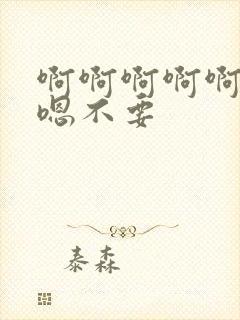 啊啊啊啊啊
嗯不要
泰森